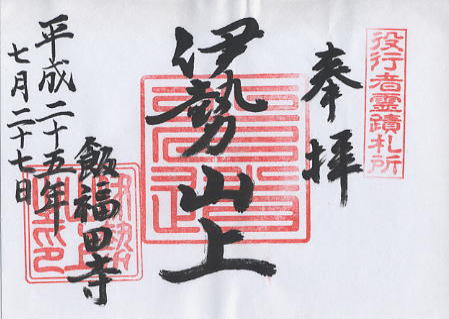 役行者霊蹟札所
奉拝
伊勢山上
飯福田寺
平成二十五年
七月二十七日